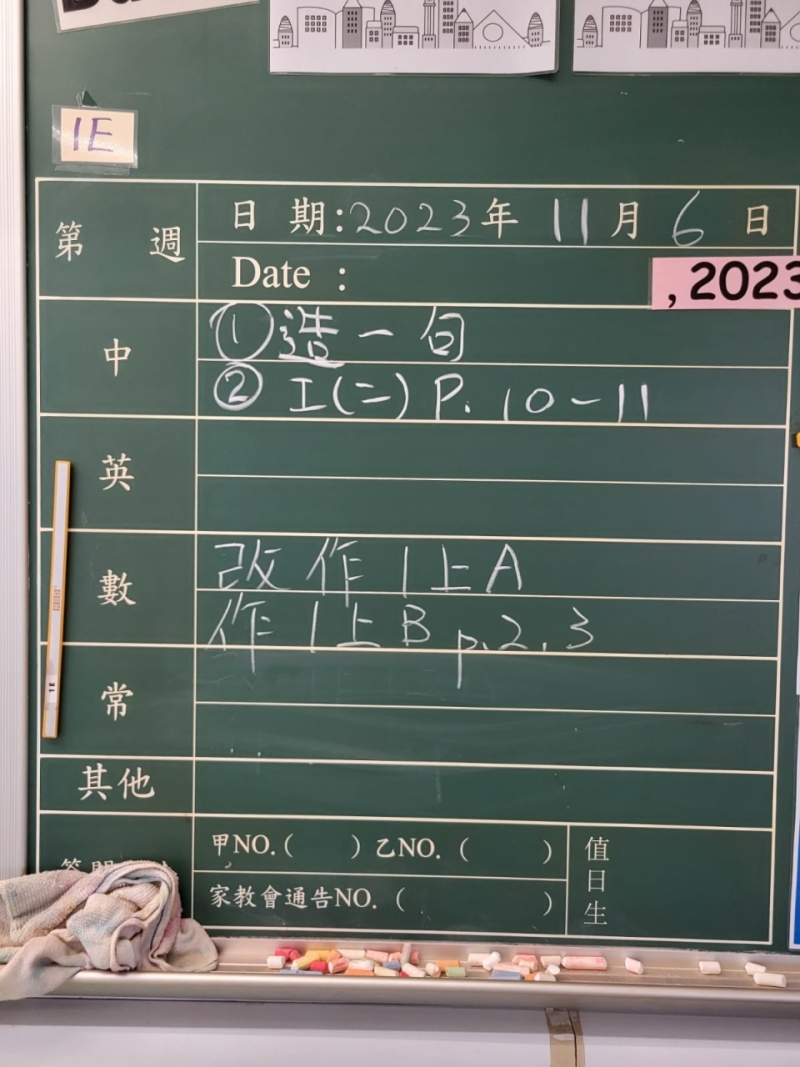 1E
第 週
日 期:2023年 11月 6日
Date :
, 2023
中
①造一句
②工(二)P. 10-11
英
數
改作1上A
作1上B p.2.3
常
其他
甲NO.( ) 乙NO. ( )
家教會通告NO. ( )
值日生
1E